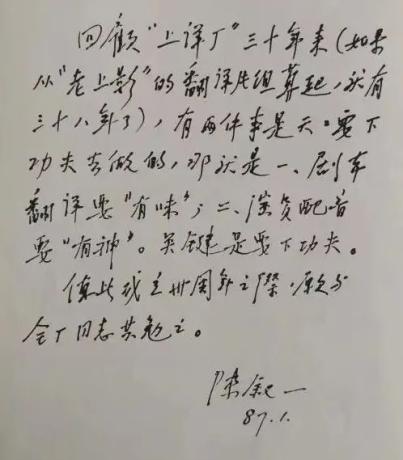 回顾“上译厂”三十年来(如果
从“老上影”的翻译片组算起,就有
三十八年了),有两件事是天天要下
功夫去做的,那就是一、剧本
翻译要“有味”;二、演员配音
要“有神”。关键是要下功夫。
值此成立卅周年之际,愿与
全厂同志共勉之。
陈叙一
87.1.